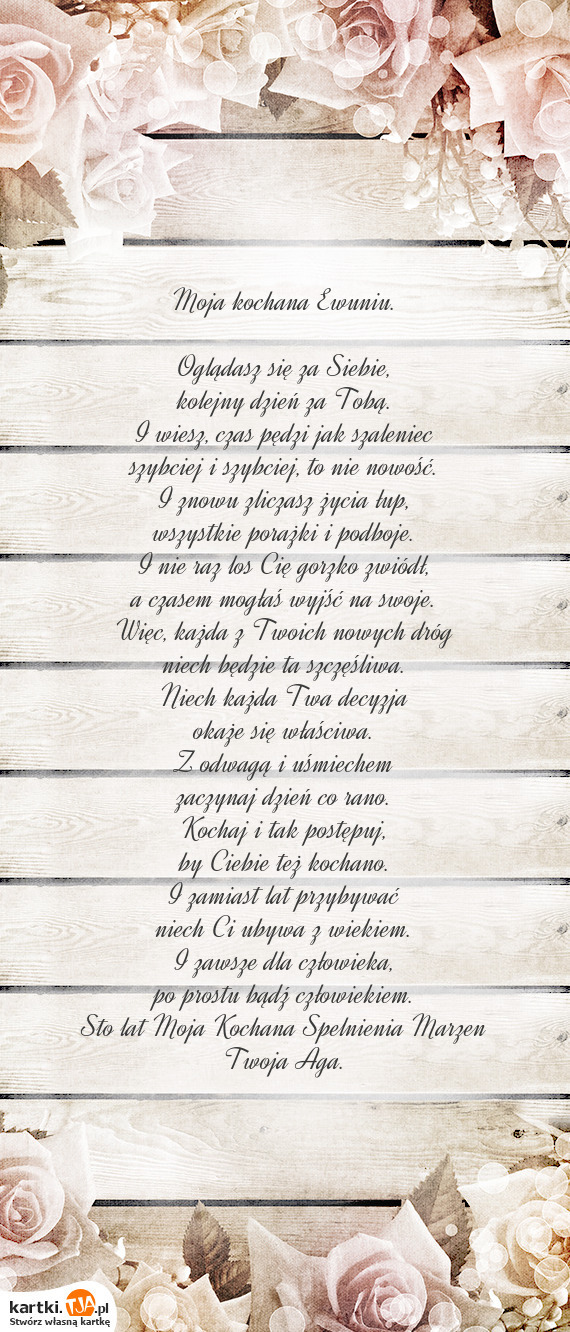 Moja kochana Ewuniu.
Oglądasz się za Siebie,
kolejny dzień za Tobą.
I wiesz, czas pędzi jak szaleniec
szybciej i szybciej, to nie nowość.
I znowu zliczasz życia łup,
wszystkie porażki i podboje.
I nie raz los Cię gorzko zwiódł,
a czasem mogłaś wyjść na swoje.
Więc, każda z Twoich nowych dróg
niech będzie ta szczęśliwa.
Niech każda Twa decyzja
okaże się właściwa.
Z odwagą i uśmiechem
zaczynaj dzień co rano.
Kochaj i tak postępuj,
by Ciebie też kochano.
I zamiast lat przybywać
niech Ci ubywa z wiekiem.
I zawsze dla człowieka,
po prostu bądź człowiekiem.
Sto lat Moja Kochana Spelnienia Marzen
Twoja Aga.
kartki.TJA.pl
Stwórz własną kartkę